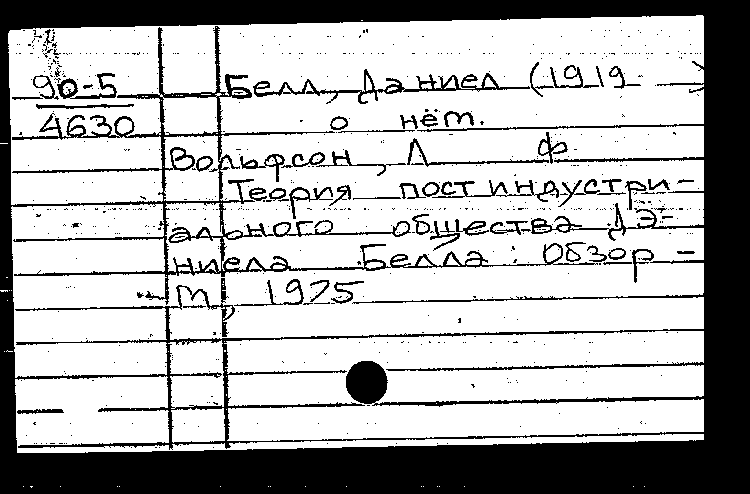 90-5 Белл, Даниел (1919 )
4630 о нём.
Вольфсон, Л Ф
Теория постиндустри-
ального общества Дэ-
ниела Белла: Обзор -
м, 1975